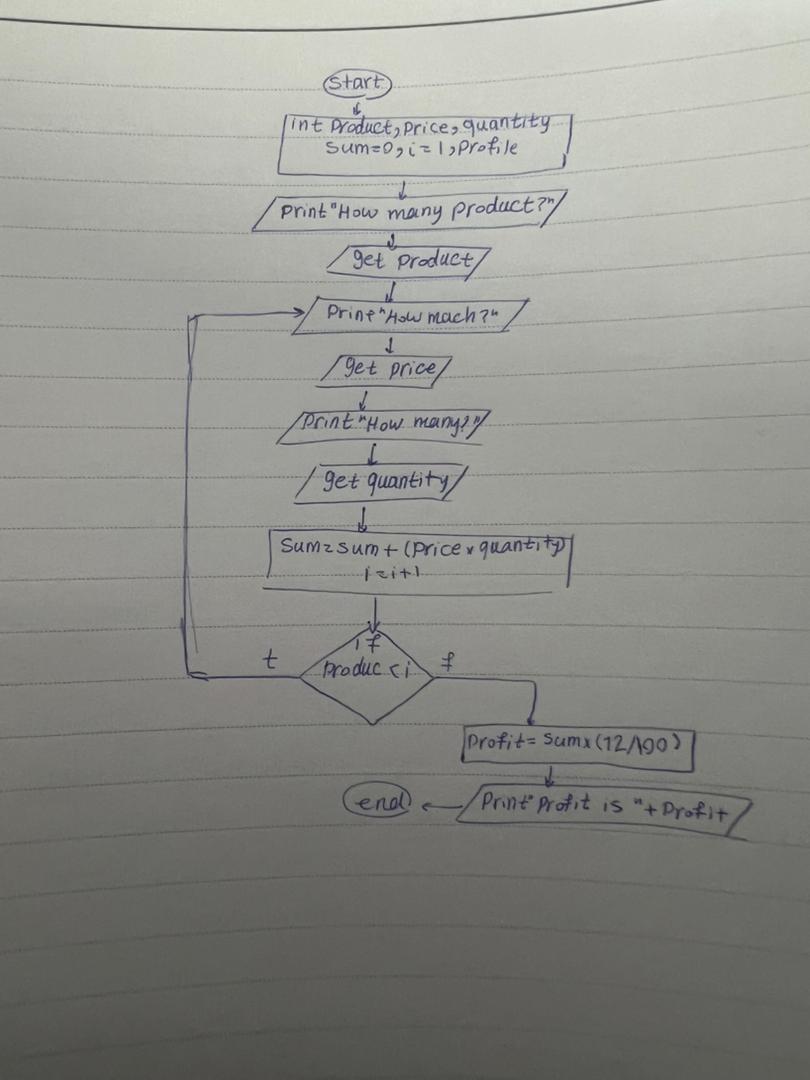 Start
int Product, Price, quantity
Sum=0, i=1, Profile
Print "How many product?"
get product
Print "How mach?"
get price
Print "How many?"
get quantity
Sum=sum+(price x quantity)
i=i+1
if
t
produc < i
f
Profit=Sum x (12/100)
end
Print "Profit is "+Profit